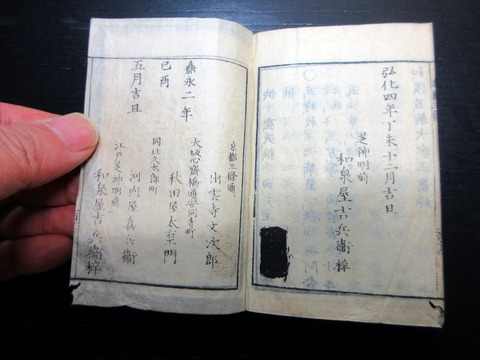 弘化四年丁未十二月吉旦
芝神明前
和泉屋吉兵衞梓
京都三條通
出雲寺文次郎
大坂心齋橋通安同寺町
秋田屋太右エ門
同北久太郎町
河内屋喜兵衞
江戸芝神明前
和泉屋吉兵衞梓
嘉永二年
己酉
五月吉旦